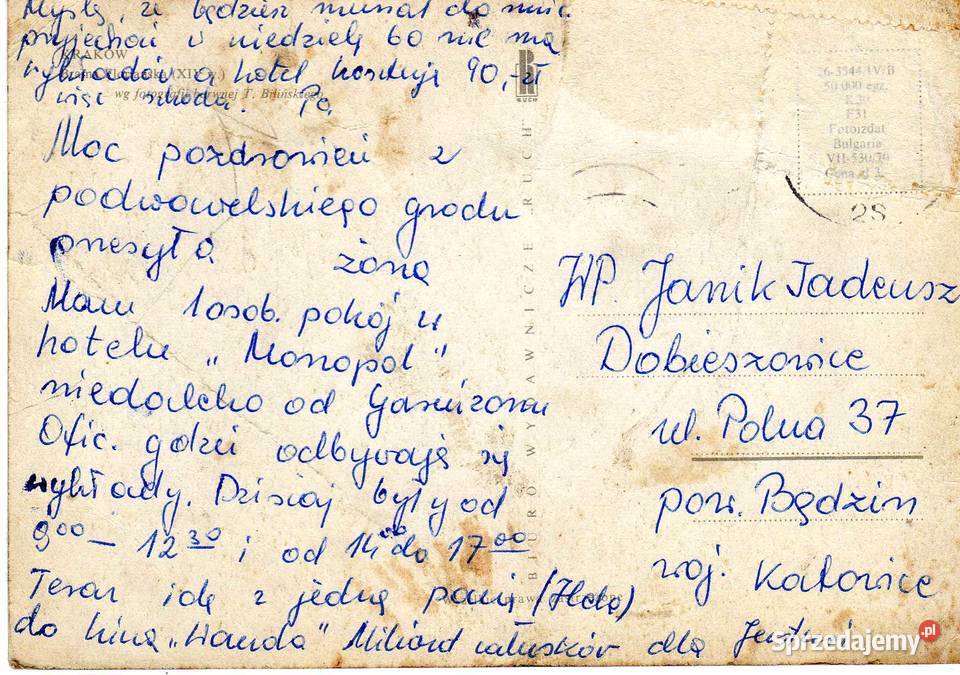 Myślę, że będziesz musiał do mnie
przyjechać w niedzielę bo nie ma
wykładów a hotel kosztuje 90,- zł
więc szkoda. Pa.
KRAKÓW
Brama Floriańska (XIII w.)
wg fotografii barwnej T. Bilińskiego
Moc pozdrowień z
podwawelskiego grodu
przesyła żona
Mam 1osob. pokój w
hotelu „Monopol"
niedaleko od Garnizonu
Ofic. gdzie odbywają się
wykłady. Dzisiaj były od
9⁰⁰ – 12 30 i od 14⁰⁰ do 17 00
Teraz idę z jedną panią
do kina „Wanda" Miliard całusków dla
RUCH
BIURO WYDAWNICZE RUCH
6-3544/IV/B
50 000 egz.
F31
Fotoizdat
Bulgaria
VII-530/70
Cena zł 3.
28
WP. Janik Tadeusz
Dobieszowice
ul. Polna 37
pow. Będzin
woj. Katowice
Sprzedajemy.pl